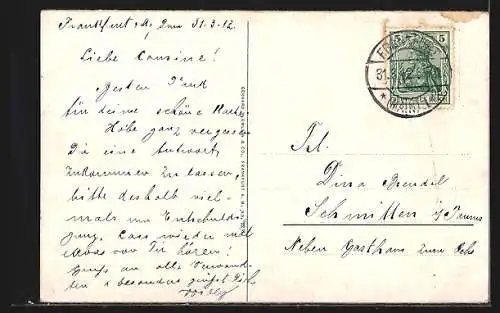 Frankfurt a/M, den 31.3.12.
Liebe Cousine!
Besten Dank
für deine schöne Karte
Habe ganz vergessen
Dir eine Antwort
zukommen zu lassen,
bitte deshalb viel-
mals um Entschuldi-
gung. Lass wieder mal
etwas von Dir hören!
Gruss an alle Verwand-
ten & besonders grüsst Dich
Frl.
Dina Bendel
Schmitten i/Taunus
Neben Gasthaus zum Ochs
5
31.3.12